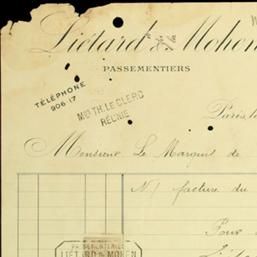 Liétard & Mohen
PASSEMENTIERS
TÉLÉPHONE
906.17
MON TH. LE CLERC
RÉUNIE
Paris, le
Monsieur Le Marquis de
N/ facture du
Pour
PASSEMENTERIE
LIÉTARD & MOHEN